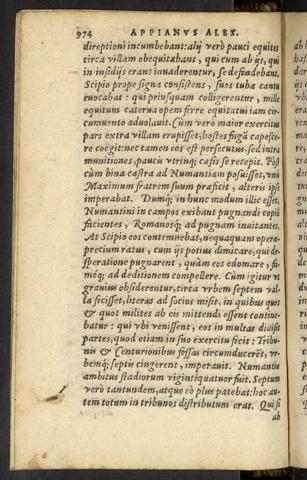 974 APPIANVS ALEX.
direptioni incumbebant: alij verò pauci equites
circa villam obequitabant, qui cum ab ijs, qui
in insidijs erant inuaderentur, se defendebant.
Scipio prope signa consistens, suos tuba cantu
euocabat: qui priusquam colligerentur, mille
equitum caterua opem ferre equitatui iam cir-
cumuento aduolauit. Cùm verò maior exercitus
pars extra villam erupisset, hostes fugã capesce-
re coëgit: nec tamen eos est persecutus, sed intra
munitiones, paucis vtrinq; cæsis se recepit. Põst
cùm bina castra ad Numantiam posuisset, vnis
Maximum fratrem suum præficit, alteris ipse
imperabat. Dumq; in hunc modum illic esset,
Numantini in campos exibant pugnandi copiã
facientes, Romanosq; ad pugnam inuitantes.
At Scipio eos contemnebat, nequaquam operæ
precium ratus, cum ijs potius dimicare, qui de-
speratione pugnarent, quàm eos edomare, fa-
méq; ad deditionem compellere. Cùm igitur vt
grauius obsiderentur, circa vrbem septem val-
la fecisset, literas ad socios misit, in quibus quot
& quot milites ab eis mittendi essent contine-
batur: qui vbi venissent, eos in multas diuisit
partes, quod etiam in suo exercitu fecit: Tribu-
nis & Centurionibus fossas circumducerẽt, vr-
bemq; septis cingerent, imperauit. Numantiæ
ambitus stadiorum vigintiquatuor fuit. Septum
verò tantundem, atque eò plus patebat: hoc au-
tem totum in tribunos distributum erat. Qui si
ab